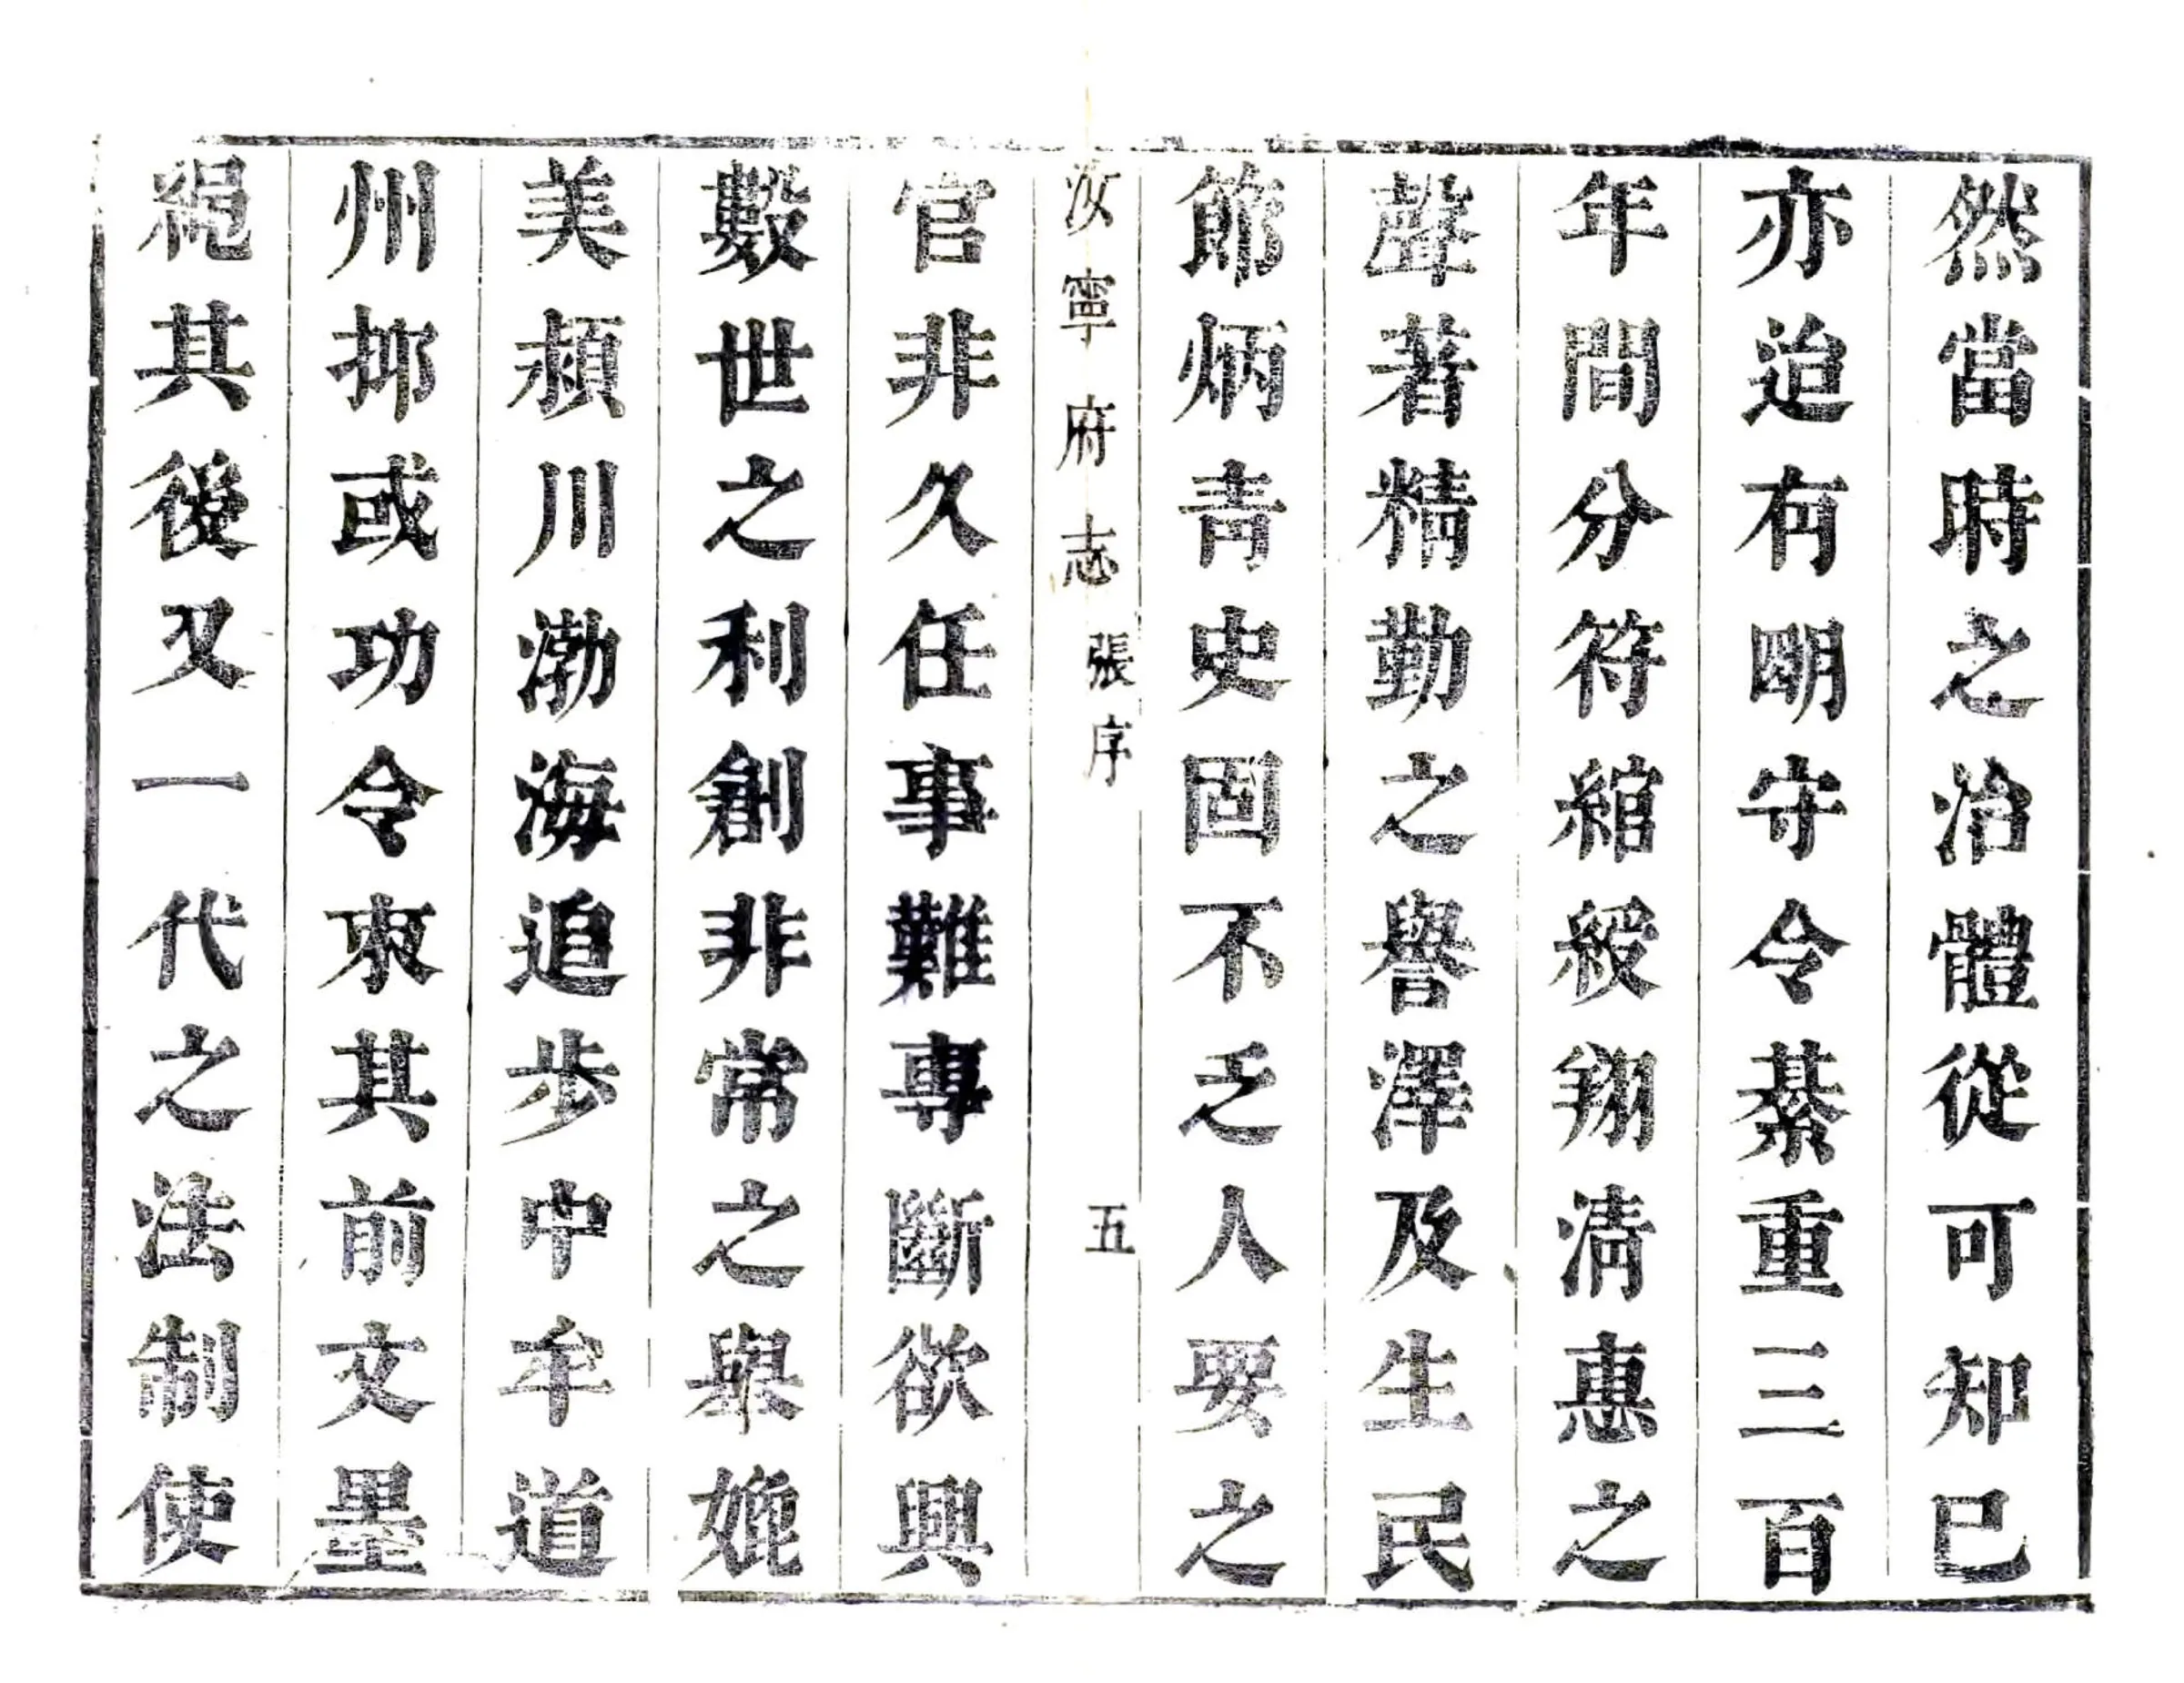 然當時之治體從可知已
亦迨有明守令綦重三百
年間分符綰綬翔淸惠之
聲著精勤之譽澤及生民
節炳靑史固不乏人要之
汝寧府志 張序 五
官非久任事難專斷欲興
數世之利創非常之舉媲
美潁川渤海追步中牟道
州抑或功令束其前文墨
繩其後又一代之法制使